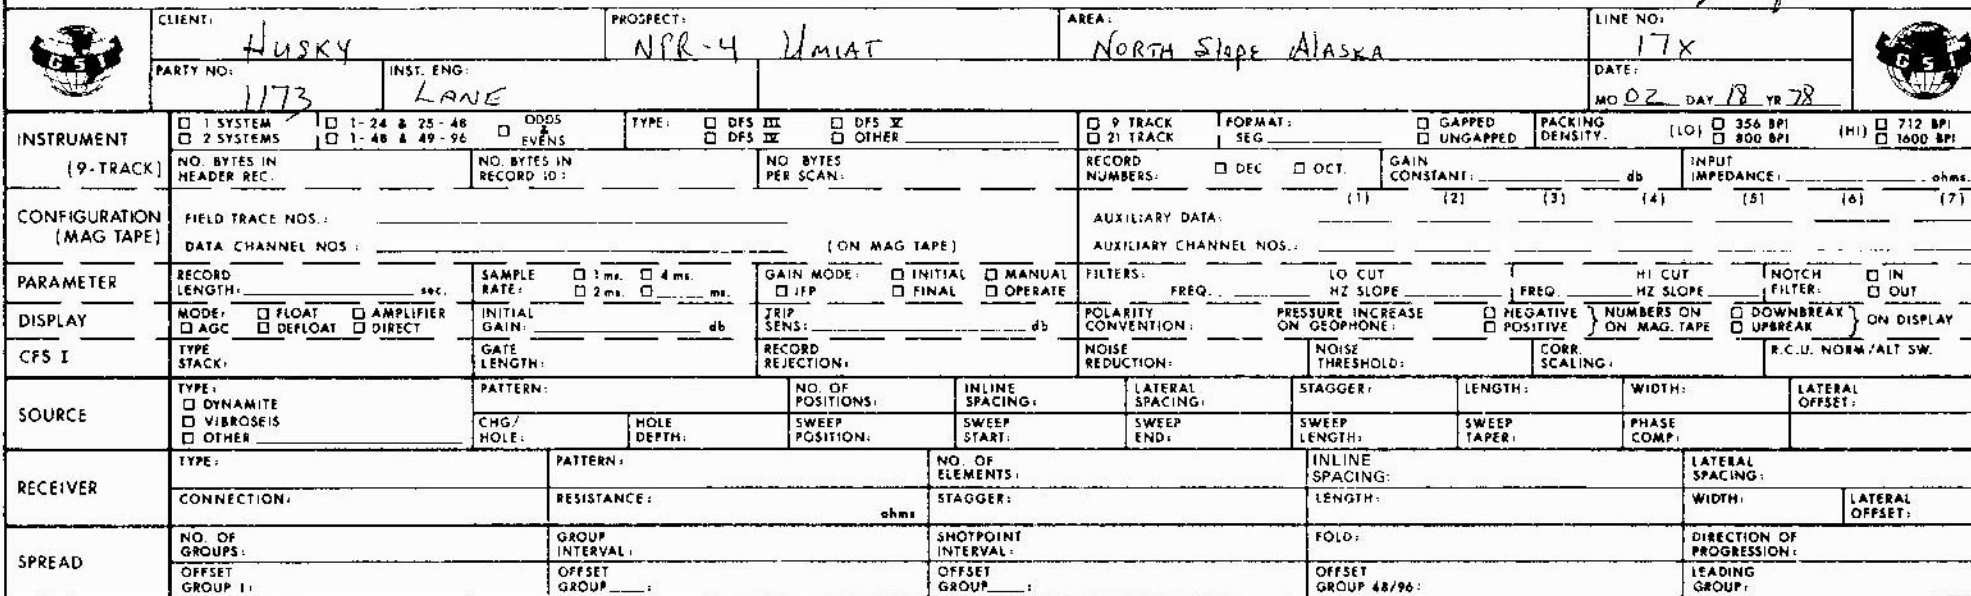 CLIENT: HUSKY PROSPECT: NPR-4 UMIAT AREA: NORTH SlOPE AlASKA LINE NO: 17X
GSI GSI
PARTY NO: 1173 INST. ENG: LANE DATE: MO 02 DAY 18 YR 78
INSTRUMENT (9-TRACK)
☐ 1 SYSTEM ☐ 1-24 & 25-48 ☐ ODDS & EVENS TYPE: ☐ DFS III ☐ DFS V ☐ 9 TRACK FORMAT: ☐ GAPPED PACKING DENSITY. (LO) ☐ 356 BPI (HI) ☐ 712 BPI
☐ 2 SYSTEMS ☐ 1-48 & 49-96 ☐ DFS IV ☐ OTHER ☐ 21 TRACK SEG ☐ UNGAPPED ☐ 800 BPI ☐ 1600 BPI
NO. BYTES IN HEADER REC. NO. BYTES IN RECORD ID: NO BYTES PER SCAN: RECORD NUMBERS: ☐ DEC ☐ OCT. GAIN CONSTANT: db INPUT IMPEDANCE: ohms.
CONFIGURATION (MAG TAPE)
(1) (2) (3) (4) (5) (6) (7)
FIELD TRACE NOS.: AUXILIARY DATA:
DATA CHANNEL NOS: (ON MAG TAPE) AUXILIARY CHANNEL NOS.:
PARAMETER
RECORD LENGTH: sec. SAMPLE RATE: ☐ 1 ms. ☐ 4 ms. ☐ 2 ms. ☐ ms. GAIN MODE: ☐ INITIAL ☐ MANUAL ☐ IFP ☐ FINAL ☐ OPERATE FILTERS: FREQ. LO CUT HZ SLOPE FREQ. HI CUT HZ SLOPE NOTCH FILTER: ☐ IN ☐ OUT
DISPLAY
MODE: ☐ FLOAT ☐ AMPLIFIER ☐ AGC ☐ DEFLOAT ☐ DIRECT INITIAL GAIN: db TRIP SENS: db POLARITY CONVENTION: PRESSURE INCREASE ON GEOPHONE: ☐ NEGATIVE ☐ POSITIVE } NUMBERS ON ON MAG. TAPE ☐ DOWNBREAK ☐ UPBREAK } ON DISPLAY
CFS I
TYPE STACK: GATE LENGTH: RECORD REJECTION: NOISE REDUCTION: NOISE THRESHOLD: CORR. SCALING: R.C.U. NORM/ALT SW.
SOURCE
TYPE: ☐ DYNAMITE ☐ VIBROSEIS ☐ OTHER
PATTERN: NO. OF POSITIONS: INLINE SPACING: LATERAL SPACING: STAGGER: LENGTH: WIDTH: LATERAL OFFSET:
CHG/HOLE: HOLE DEPTH: SWEEP POSITION: SWEEP START: SWEEP END: SWEEP LENGTH: SWEEP TAPER: PHASE COMP:
RECEIVER
TYPE: PATTERN: NO. OF ELEMENTS: INLINE SPACING: LATERAL SPACING:
CONNECTION: RESISTANCE: ohms STAGGER: LENGTH: WIDTH: LATERAL OFFSET:
SPREAD
NO. OF GROUPS: GROUP INTERVAL: SHOTPOINT INTERVAL: FOLD: DIRECTION OF PROGRESSION:
OFFSET GROUP 1: OFFSET GROUP : OFFSET GROUP : OFFSET GROUP 48/96: LEADING GROUP: